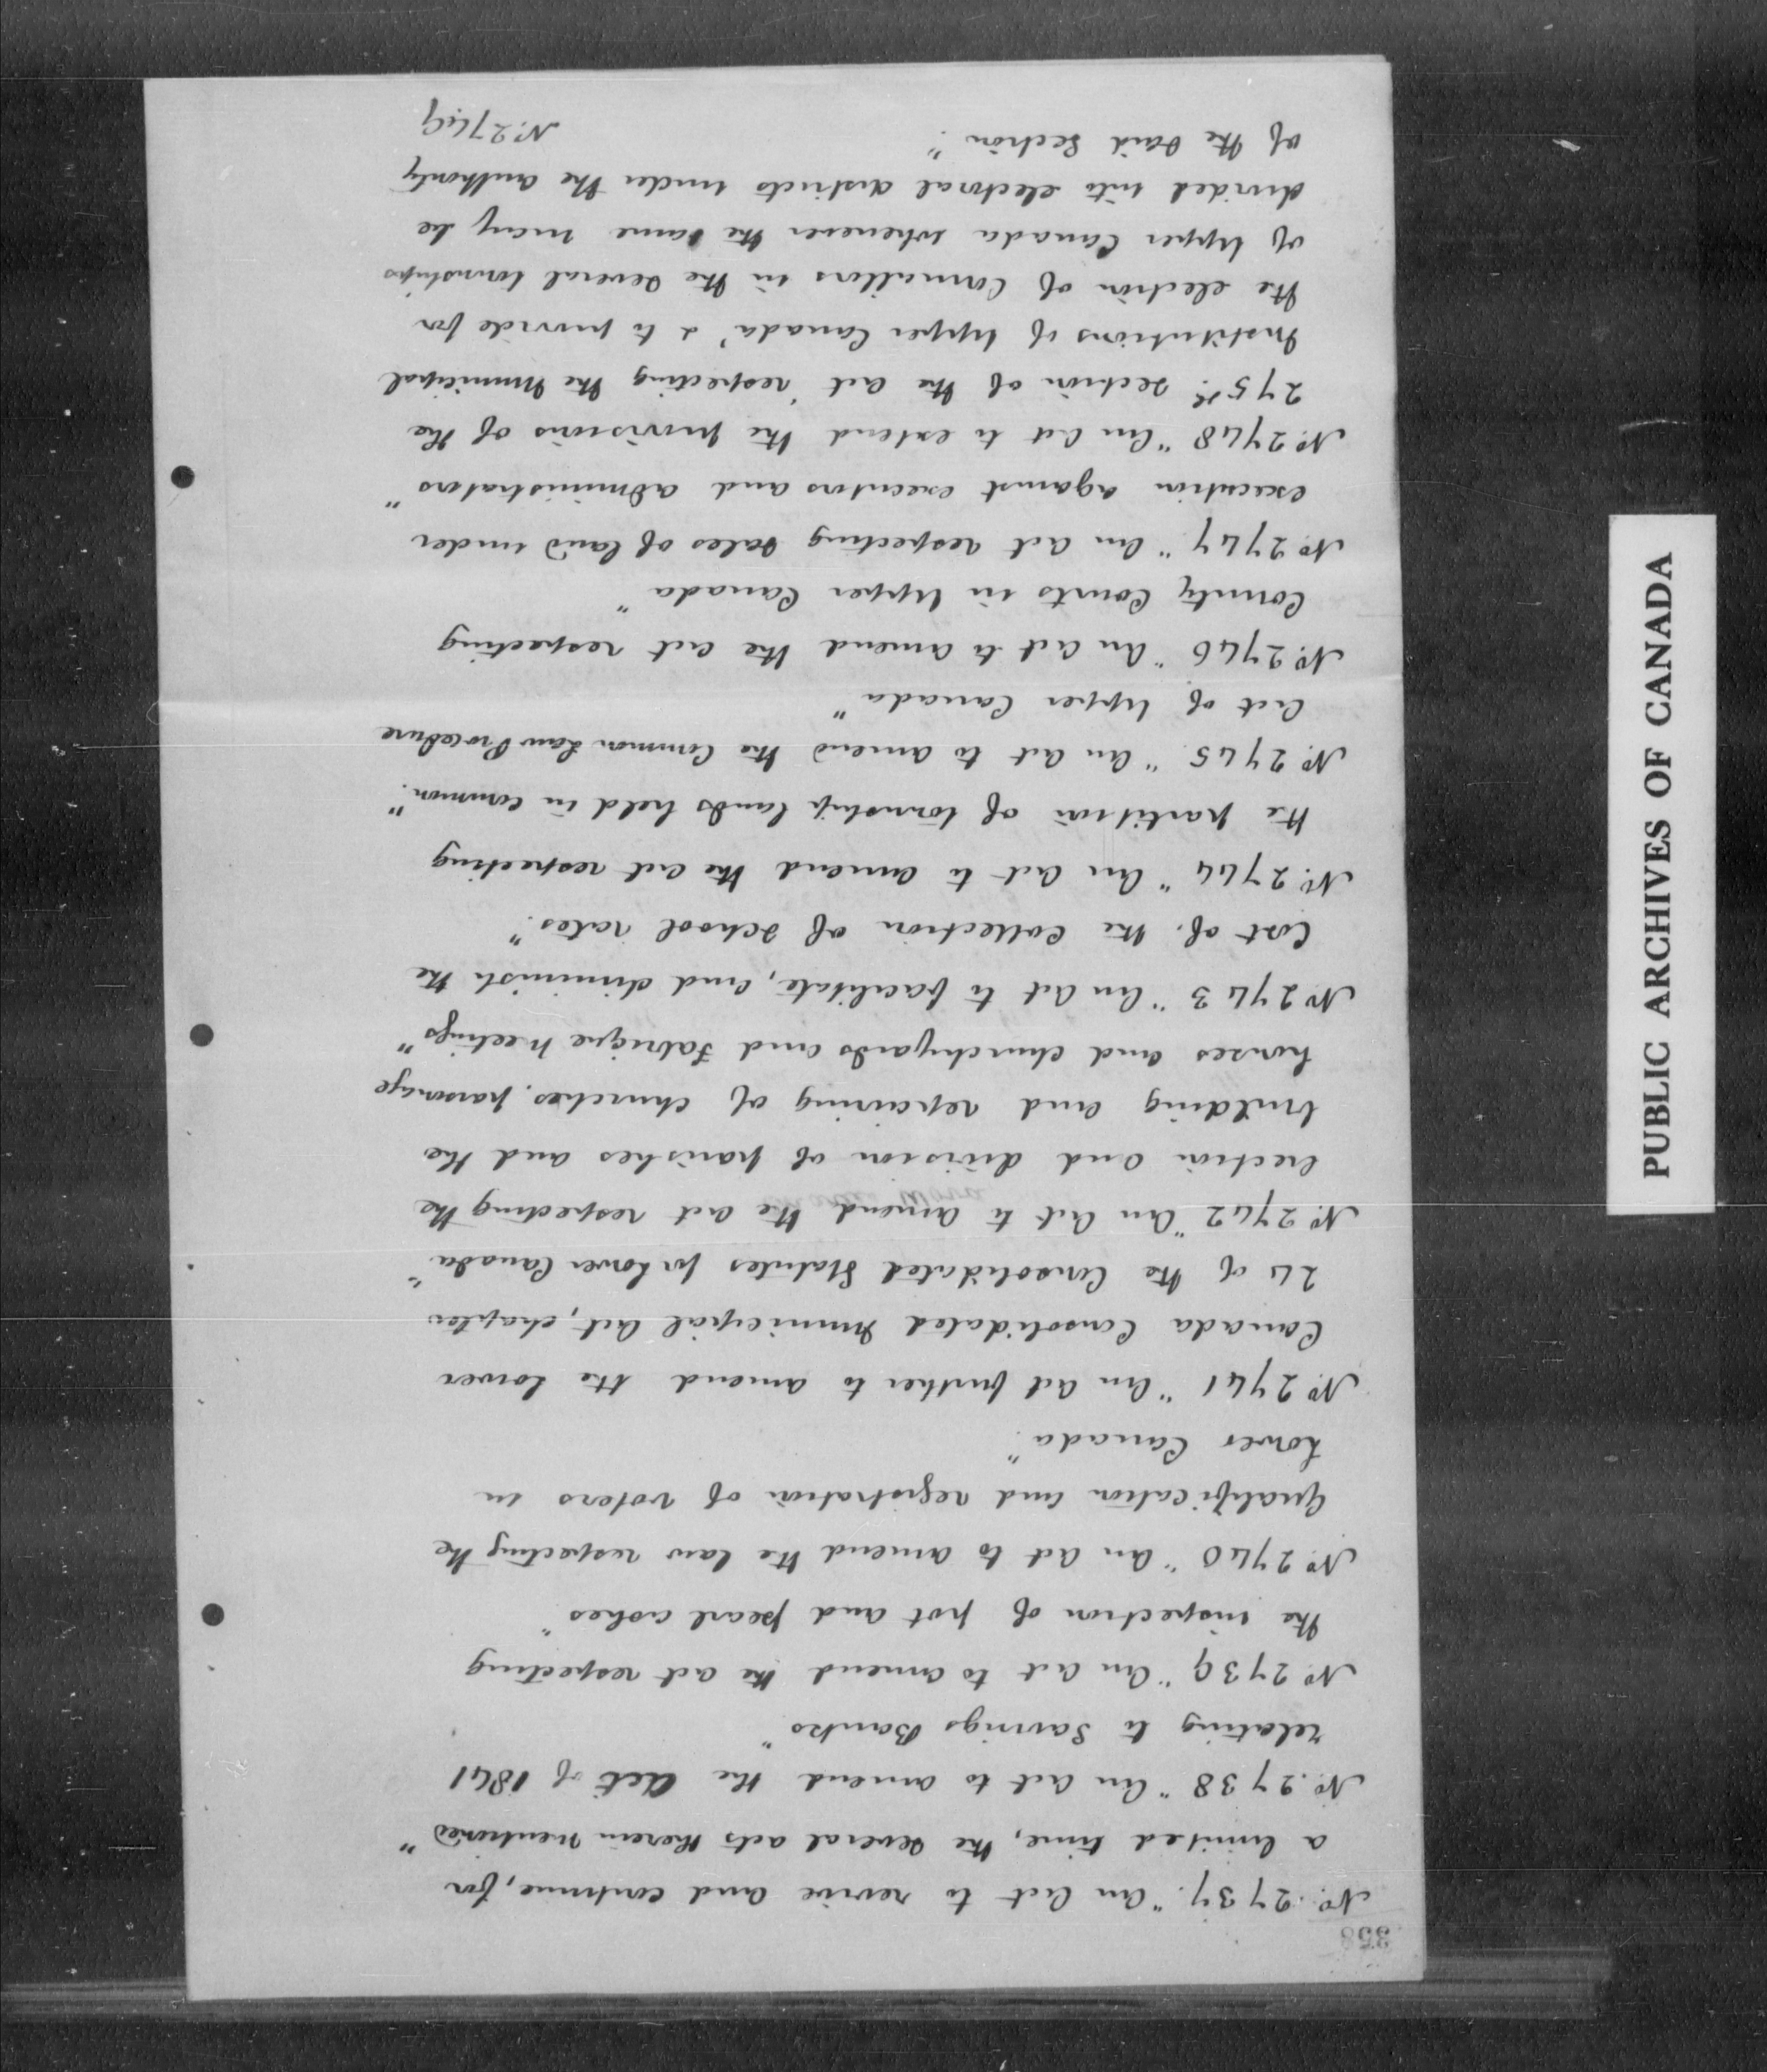 358
No. 2737. "An Act to revive and continue, for
a limited time, the several acts therein mentioned"
No. 2738 "An act to amend the Act of 1841
relating to Savings Banks"
No. 2739 "An act to amend the act respecting
the inspection of pot and pearl ashes"
No. 2740 "An act to amend the law respecting the
Qualification and registration of voters in
Lower Canada"
No. 2741 "An act further to amend the Lower
Canada Consolidated Municipal Act, chapter
24 of the Consolidated Statutes for Lower Canada"
No. 2742 "An act to amend the act respecting the
erection and division of parishes and the
building and repairing of churches, parsonage
houses and churchyards and Fabrique Meetings"
No. 2743 "An act to facilitate, and diminish the
Cost of the collection of school rates."
No. 2744 "An act to amend the act respecting
the partition of township lands held in common."
No. 2745 "An act to amend the Common Law Procedure
Act of Upper Canada"
No. 2746 "An act to amend the act respecting
County Courts in Upper Canada"
No. 2747 "An act respecting sales of land under
execution against executors and administrators"
No. 2748 "An act to extend the provisions of the
275th section of the act 'respecting the Municipal
Institutions of Upper Canada' & to provide for
the election of Councillors in the several townships
of Upper Canada whenever the same may be
divided into electoral districts under the authority
of the said Section."
No. 2749
PUBLIC ARCHIVES OF CANADA